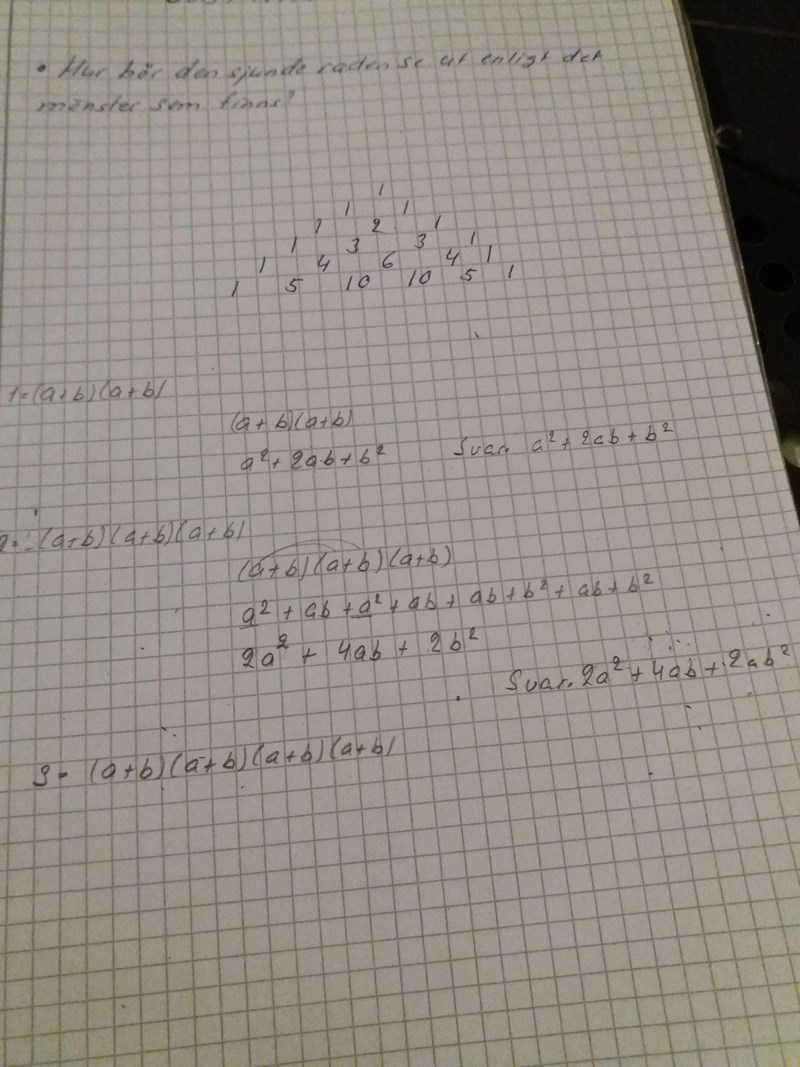 • Hur bör den sjunde raden se ut enligt det
mönster som finns?
1
1 1
1 2 1
1 3 3 1
1 4 6 4 1
1 5 10 10 5 1
1= (a+b)(a+b)
(a+b)(a+b)
a²+2ab+b² Svar. a²+2ab+b²
(a+b)(a+b)(a+b)
(a+b)(a+b)(a+b)
a² + ab + a² + ab + ab + b² + ab + b²
2a² + 4ab + 2b²
Svar. 2a² + 4ab + 2ab²
3= (a+b)(a+b)(a+b)(a+b)